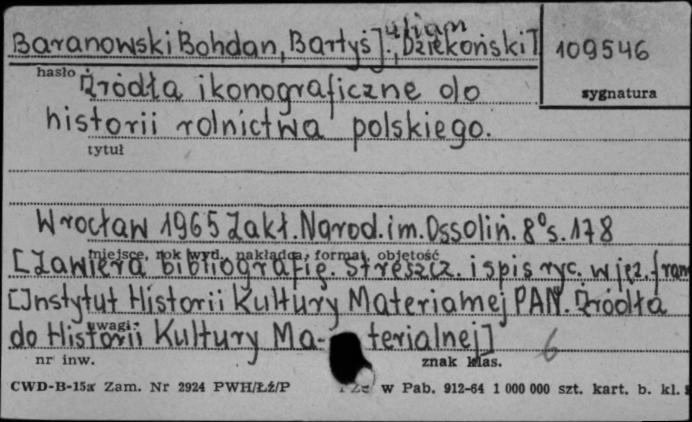 Baranowski Bohdan, Bartyś Julian, Dziekoński T
109546
hasło
sygnatura
Źródła ikonograficzne do
historii rolnictwa polskiego.
tytuł
Wrocław 1965 Zakł. Narod. im. Ossoliń. 8° s. 178
miejsce, rok wyd., nakładca, format, objętość
[Zawiera bibliografię. Streszcz. i spis ryc. w jęz. fran
[Instytut Historii Kultury Materialnej PAN. Źródła
uwagi
do Historii Kultury Ma-terialnej]
6
nr inw.
znak klas.
CWD-B-15a Zam. Nr 2924 PWH/Łź/P w Pab. 912-64 1 000 000 szt. kart. b. kl.